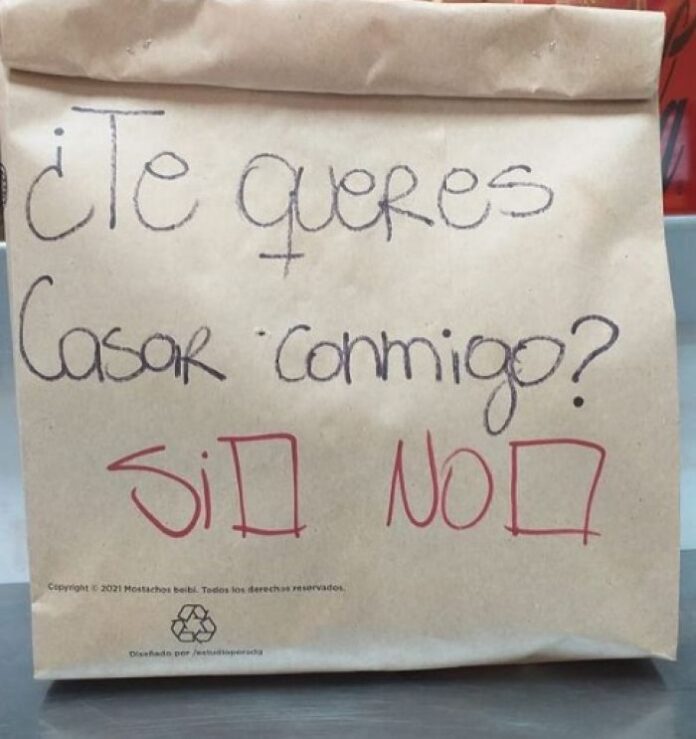 ¿Te queres
Casar conmigo?
Si NO
Copyright © 2021 Mostachos beibi. Todos los derechos reservados.
Diseñado por /estudioporada